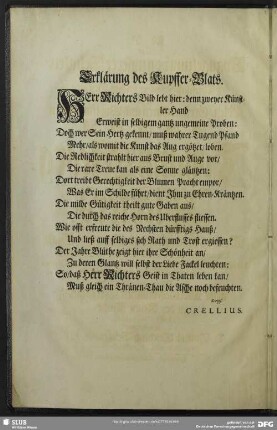 Erklärung des Kupffer-Blats.
HErr Richters Bild lebt hier: denn zweyer Künst-
ler Hand
Erweist in selbigem gantz ungemeine Proben:
Doch wer Sein Hertz gekennt, muß wahrer Tugend Pfand
Mehr, als womit die Kunst das Aug ergötzet, loben.
Die Redlichkeit strahlt hier aus Brust und Auge vor,
Die rare Treue kan als eine Sonne gläntzen:
Dort treibt Gerechtigkeit der Blumen Pracht empor,
Was Er im Schilde führt, dient Ihm zu Ehren-Kräntzen.
Die milde Gütigkeit theilt gute Gaben aus,
Die durch das reiche Horn des Uberflusses fliessen.
Wie offt erfreute die des Nechsten dürfftigs Hauß,
Und ließ auff selbiges sich Rath und Trost ergiessen?
Der Jahre Blüthe zeigt hier ihre Schönheit an,
Zu deren Glantz will selbst der Liebe Fackel leuchten:
So, daß HErr Richters Geist in Thaten leben kan,
Muß gleich ein Thränen-Thau die Asche noch befeuchten.
CRELLIUS.
SLUB
DFG